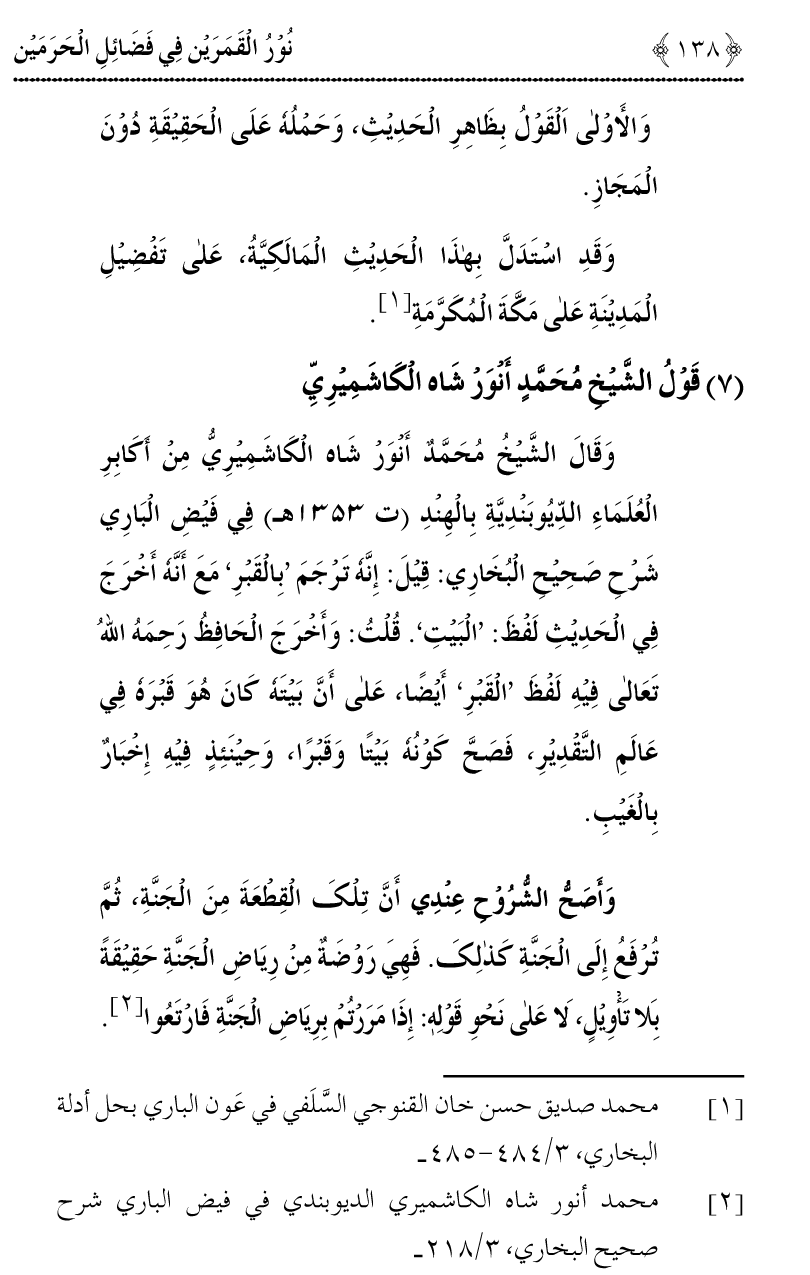 ﴿١٣٨﴾ نُوْرُ الْقَمَرَيْن فِي فَضَائِلِ الْحَرَمَيْن
وَالْأَوْلٰى اَلْقَوْلُ بِظَاهِرِ الْحَدِيْثِ، وَحَمْلُهٗ عَلَى الْحَقِيْقَةِ دُوْنَ
الْمَجَازِ.
وَقَدِ اسْتَدَلَّ بِهٰذَا الْحَدِيْثِ الْمَالَكِيَّةُ، عَلٰى تَفْضِيْلِ
الْمَدِيْنَةِ عَلٰى مَكَّةَ الْمُكَرَّمَةِ[١].
(٧) قَوْلُ الشَّيْخِ مُحَمَّدٍ أَنْوَرْ شَاه الْكَاشَمِيْرِيِّ
وَقَالَ الشَّيْخُ مُحَمَّدٌ أَنْوَرْ شَاه الْكَاشَمِيْرِيُّ مِنْ أَكَابِرِ
الْعُلَمَاءِ الدِّيُوبَنْدِيَّةِ بِالْهِنْدِ (ت ١٣٥٣هـ) فِي فَيْضِ الْبَارِي
شَرْحِ صَحِيْحِ الْبُخَارِي: قِيْلَ: إِنَّهٗ تَرْجَمَ ’بِالْقَبْرِ‘ مَعَ أَنَّهٗ أَخْرَجَ
فِي الْحَدِيْثِ لَفْظَ: ’الْبَيْتِ‘. قُلْتُ: وَأَخْرَجَ الْحَافِظُ رَحِمَهُ اللهُ
تَعَالٰى فِيْهِ لَفْظَ ’الْقَبْرِ‘ أَيْضًا، عَلٰى أَنَّ بَيْتَهٗ كَانَ هُوَ قَبْرَهٗ فِي
عَالَمِ التَّقْدِيْرِ، فَصَحَّ كَوْنُهٗ بَيْتًا وَقَبْرًا، وَحِيْنَئِذٍ فِيْهِ إِخْبَارٌ
بِالْغَيْبِ.
وَأَصَحُّ الشُّرُوْحِ عِنْدِي أَنَّ تِلْكَ الْقِطْعَةَ مِنَ الْجَنَّةِ، ثُمَّ
تُرْفَعُ إِلَى الْجَنَّةِ كَذٰلِكَ. فَهِيَ رَوْضَةٌ مِنْ رِيَاضِ الْجَنَّةِ حَقِيْقَةً
بَلَا تَأْوِيْلٍ، لَا عَلٰى نَحْوِ قَوْلِهٖ: إِذَا مَرَرْتُمْ بِرِيَاضِ الْجَنَّةِ فَارْتَعُوا[٢].
[١] محمد صديق حسن خان القنوجي السَّلَفي في عَون الباري بحل أدلة
البخاري، ٣/٤٨٤-٤٨٥ـ
[٢] محمد أنور شاه الكاشميري الديوبندي في فيض الباري شرح
صحيح البخاري، ٣/٢١٨ـ